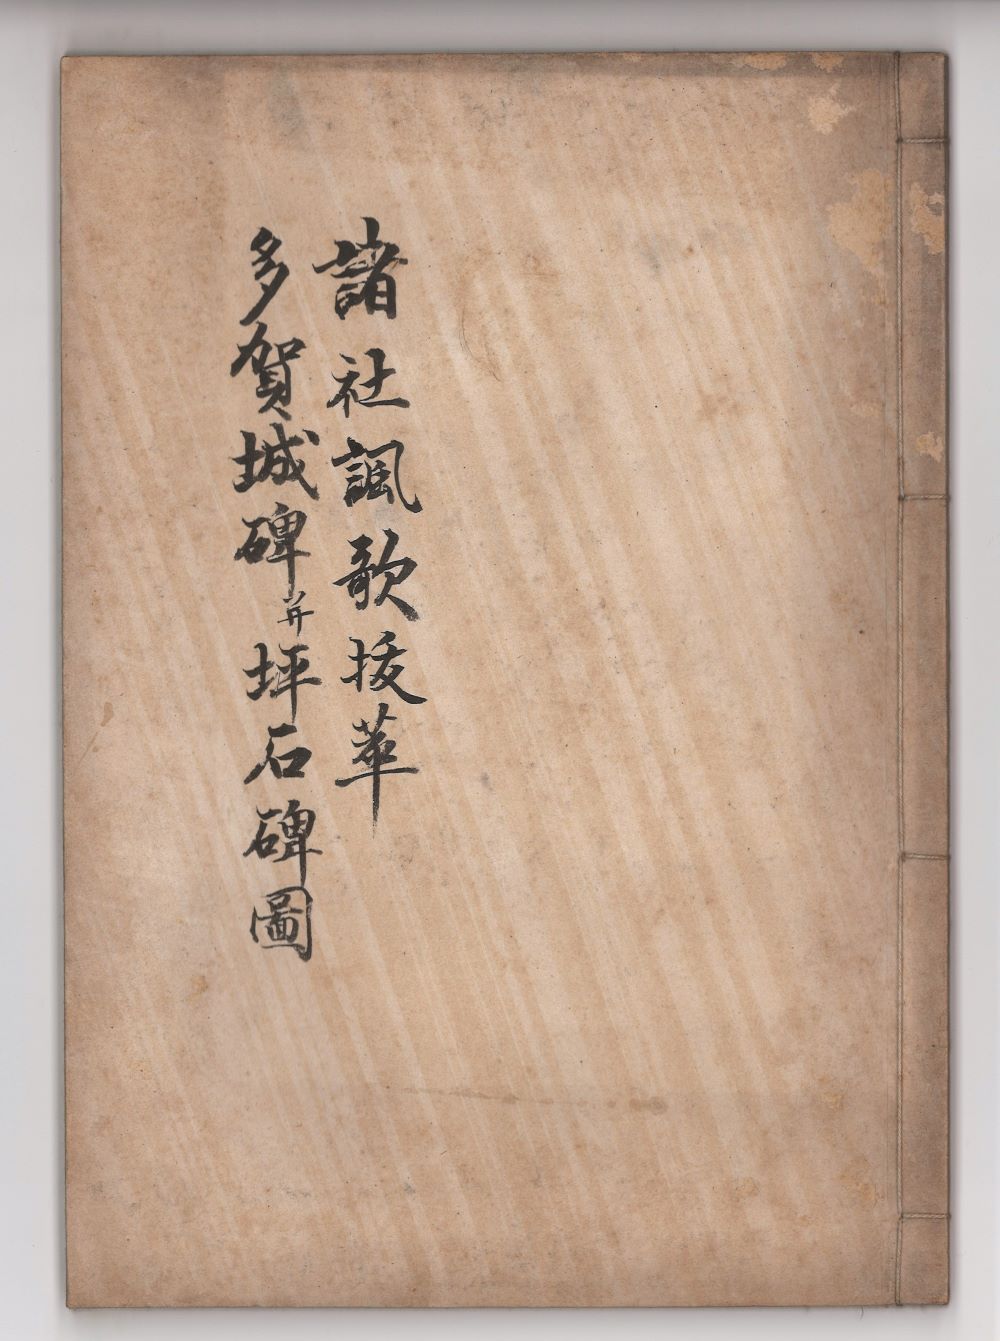 諸社諷歌抜萃
多賀城碑并坪石碑圖